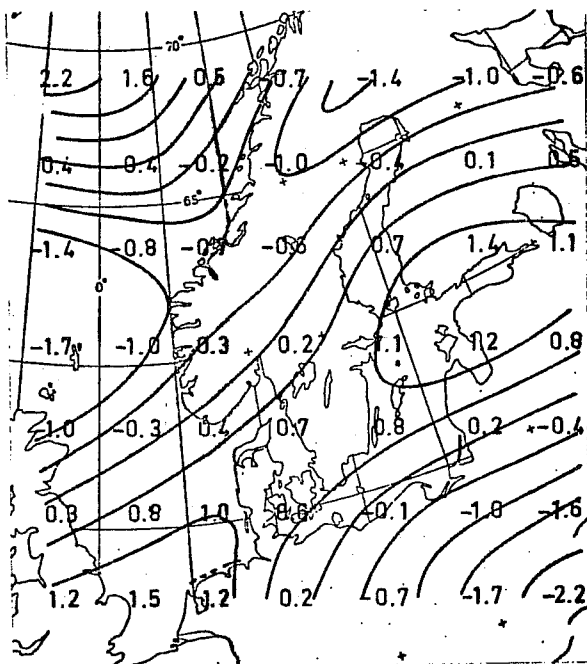 70°
2.2 1.6 0.6 -0.7 -1.4 -1.0 -0.6
0.4 0.4 -0.2 -1.0 -0.4 0.1 0.6
65°
-1.4 -0.8 -0.6 0.7 1.4 1.1
0°
-1.7 -1.0 0.3 0.2 1.1 1.2 0.8
-1.0 -0.3 0.4 0.7 0.8 0.2 -0.4
0.3 0.8 1.0 0.6 -0.1 -1.0 -1.6
1.2 1.5 1.2 0.2 -0.7 -1.7 -2.2